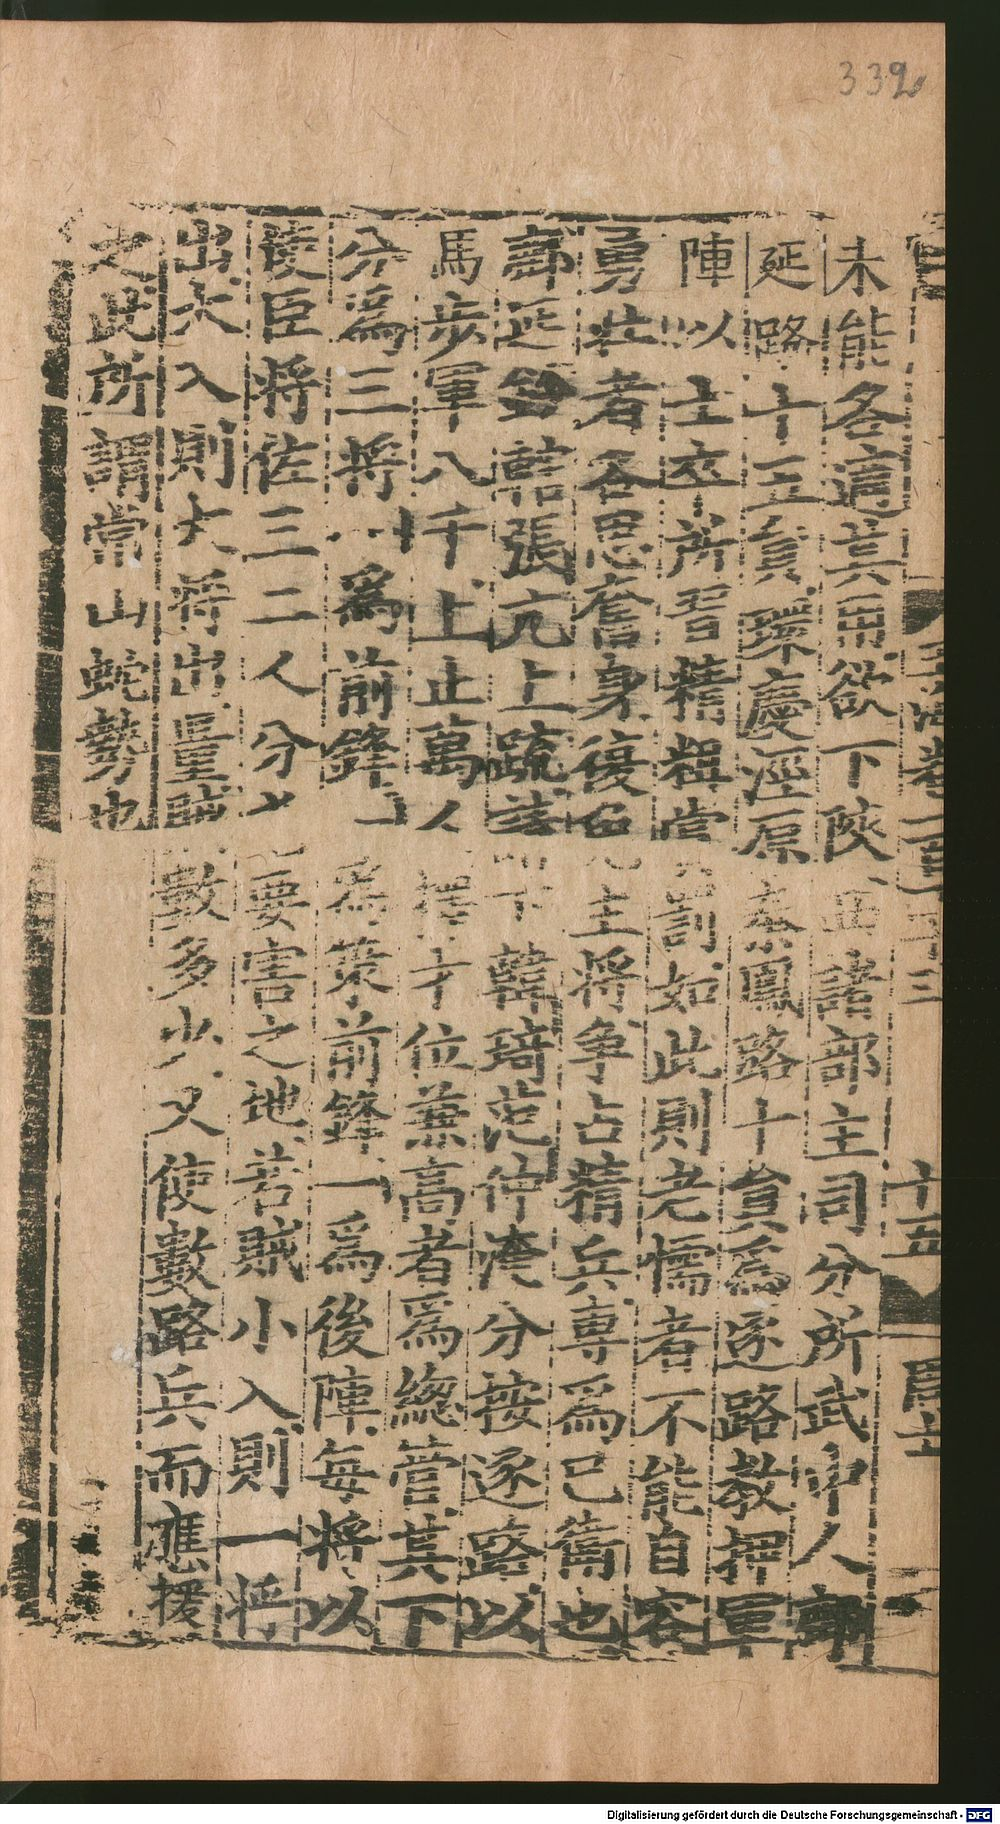 339
十五
未能各適其用欲下陜西諸部主司分所武中人鄜
延路十五員環慶涇原秦鳳路十員爲逐路教押軍
陣以士卒所習精粗當罰如此則老懦者不能自容
勇壯者各思奮身復免主將爭占精兵專爲己衛也
鄜延鈐轄張亢上疏請下韓琦范仲淹分按逐路以
馬步軍八千上止萬人擇才位兼高者爲總管其下
分爲三將一爲前鋒一爲策前鋒一爲後陣每將以
使臣將佐三二人分屯要害之地若賊小入則一將
出大入則大將出量賊數多少又使數路兵而應援
之此所謂常山蛇勢也
Digitalisierung gefördert durch die Deutsche Forschungsgemeinschaft - DFG